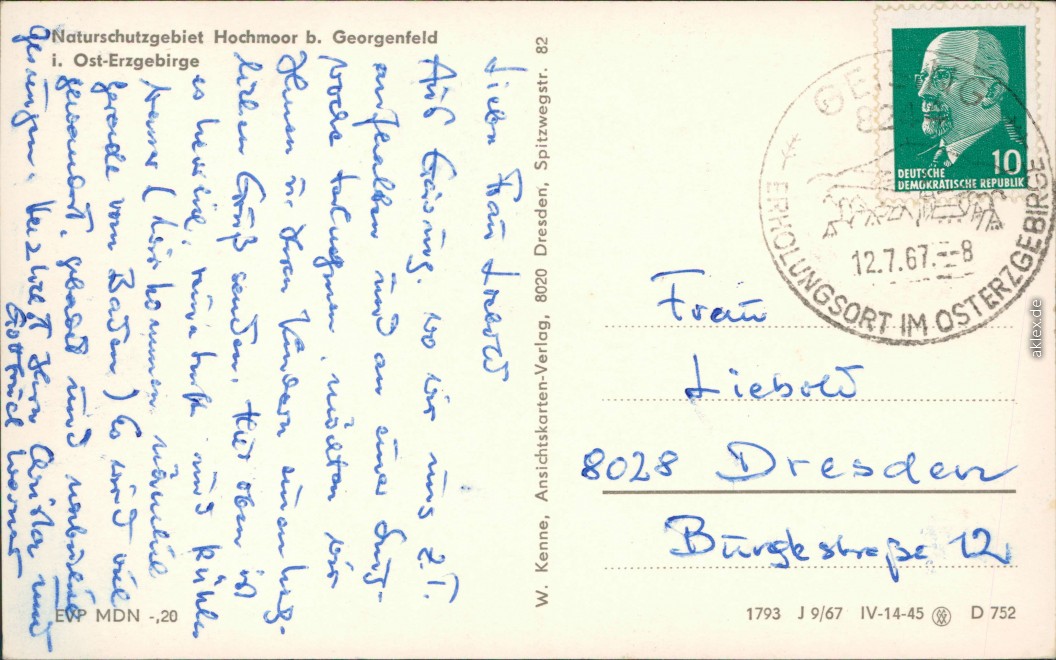 Naturschutzgebiet Hochmoor b. Georgenfeld
i. Ost-Erzgebirge
Liebe Frau Liebold
Aus Geising, wo wir uns z. T.
aufhalten und an einer Sing-
woche teilnehmen, möchten wir
Ihnen u. Ihren Kindern einen herz-
lichen Gruß senden. Hier oben ist
es herrlich, und kühler
(wir kommen nämlich
gerade vom Baden) Es wird viel
gewandert, gebadet und natürlich
gesungen. Herzlichst Ihre Christa und
Gottfried Werner
EVP MDN -,20
W. Kenne, Ansichtskarten-Verlag, 8020 Dresden, Spitzwegstr. 82
10
DEUTSCHE
DEMOKRATISCHE REPUBLIK
GEISING
12.7.67.-8
ERHOLUNGSORT IM OSTERZGEBIRGE
Frau
Liebold
8028 Dresden
Burgkstraße 12
1793 J 9/67 IV-14-45 D 752
aklex.de